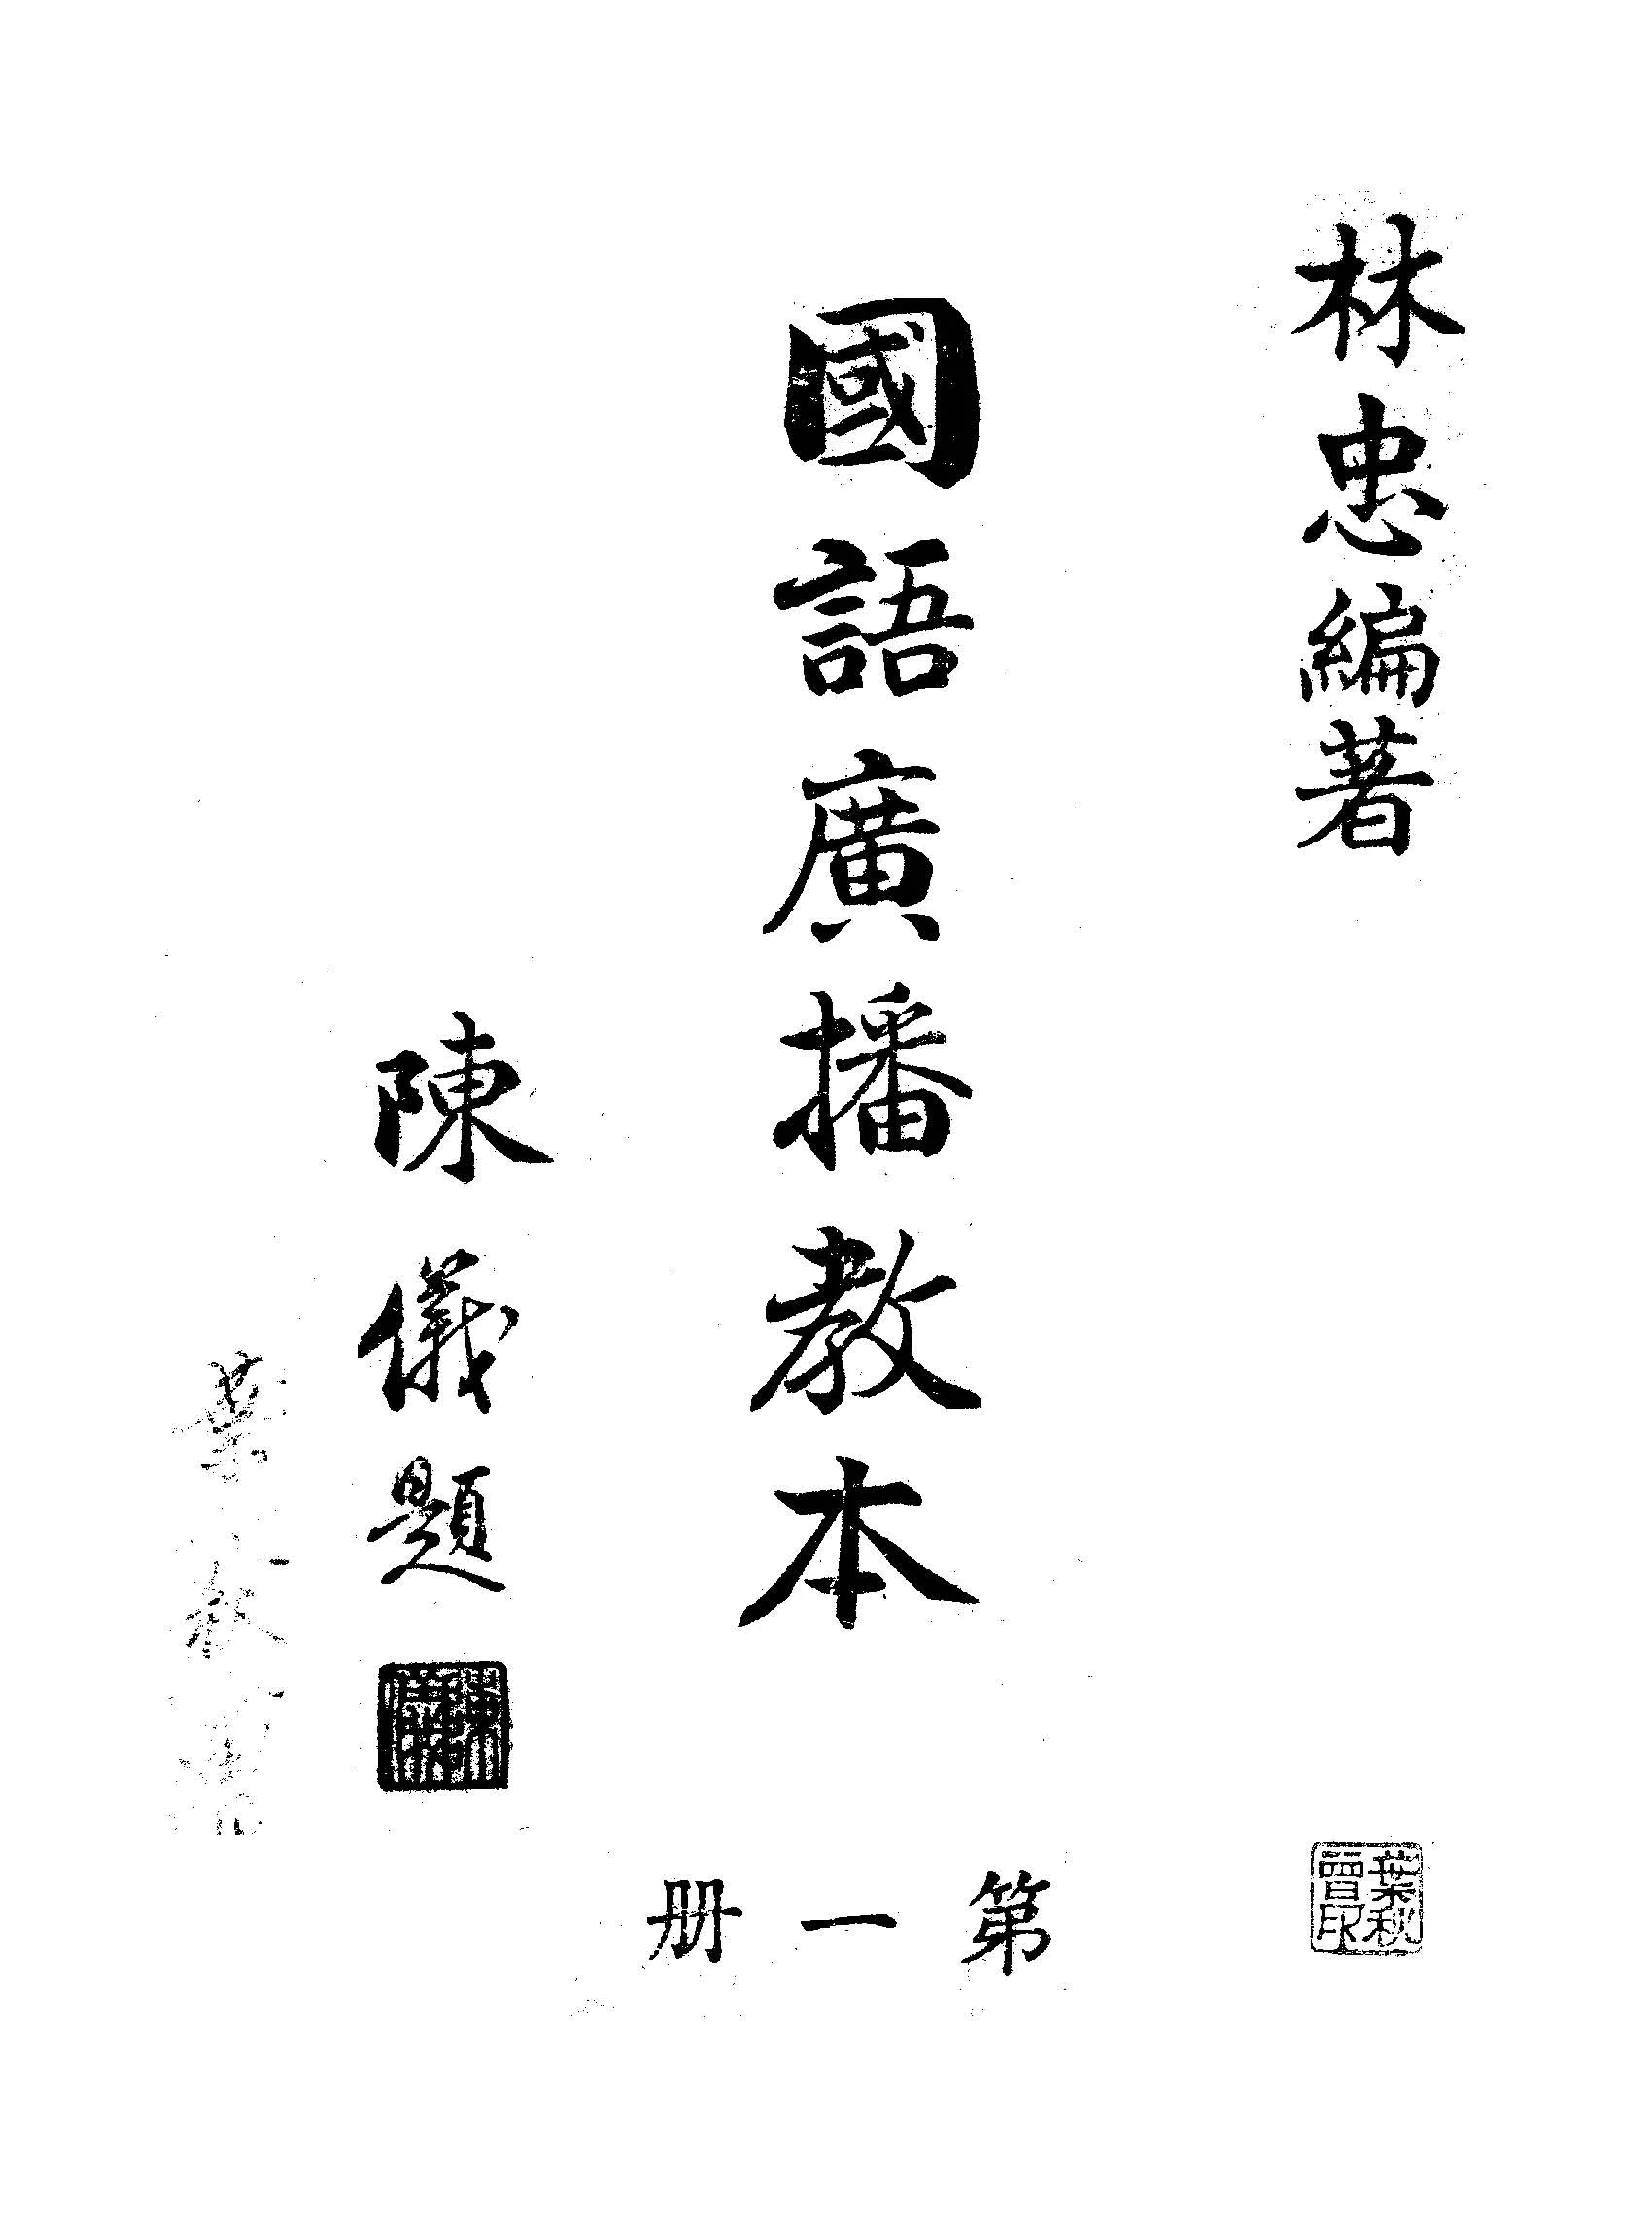 林忠編著
國語廣播教本
陳儀題
第一册
葉秋
葉秋曾印